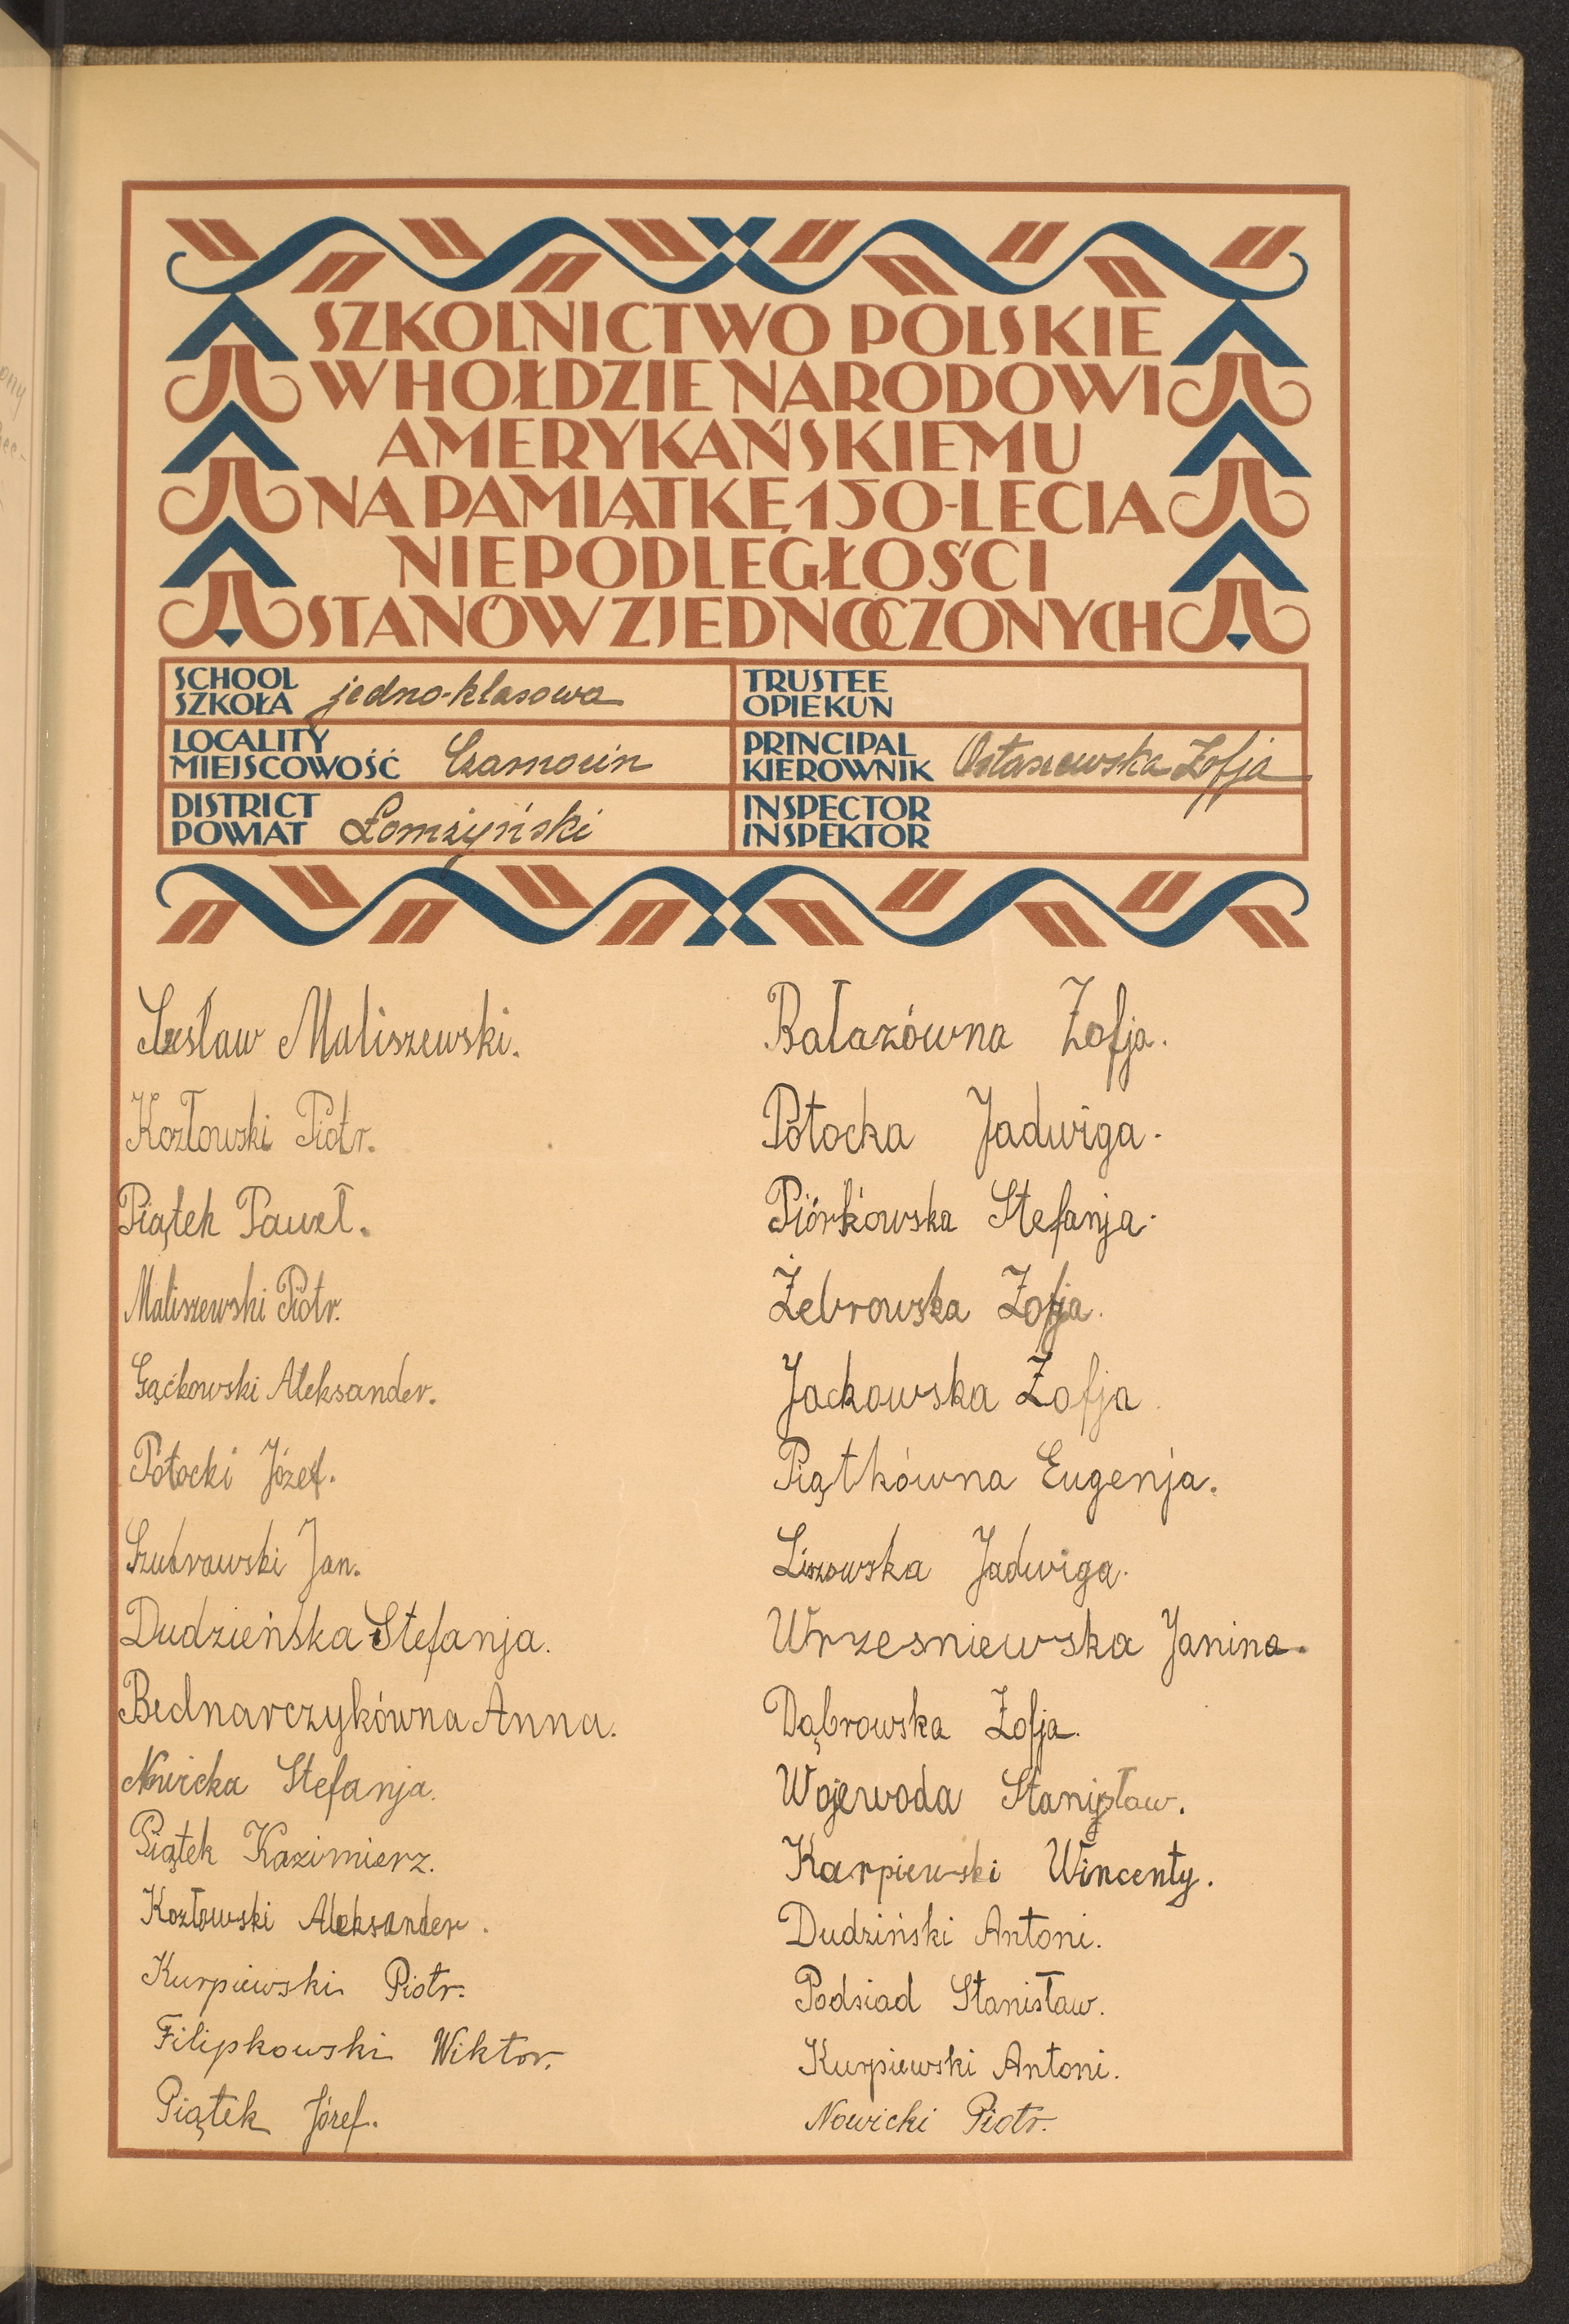 SZKOLNICTWO POLSKIE
W HOŁDZIE NARODOWI
AMERYKAŃSKIEMU
NA PAMIĄTKĘ 150-LECIA
NIEPODLEGŁOŚCI
STANÓW ZJEDNOCZONYCH
SCHOOL
SZKOŁA jedno-klasowa
TRUSTEE
OPIEKUN
LOCALITY
MIEJSCOWOŚĆ Czarnocin
PRINCIPAL
KIEROWNIK Ostaszewska Zofja
DISTRICT
POWIAT Łomżyński
INSPECTOR
INSPEKTOR
Czesław Maliszewski.
Kozłowski Piotr.
Piątek Paweł.
Maliszewski Piotr.
Gąckowski Aleksander.
Potocki Józef.
Jan.
Dudzieńska Stefanja.
Bednarczykówna Anna.
Nowicka Stefanja.
Piątek Kazimierz.
Kozłowski Aleksander.
Kurpiewski Piotr.
Filipkowski Wiktor.
Piątek Józef.
Bałazówna Zofja.
Potocka Jadwiga.
Piórkowska Stefanja.
Żebrowska Zofja.
Jackowska Zofja.
Piątkówna Eugenja.
Liszowska Jadwiga.
Wrzesniewska Janina.
Dąbrowska Zofja.
Wojewoda Stanisław.
Karpiewski Wincenty.
Dudziński Antoni.
Podsiad Stanisław.
Kurpiewski Antoni.
Nowicki Piotr.